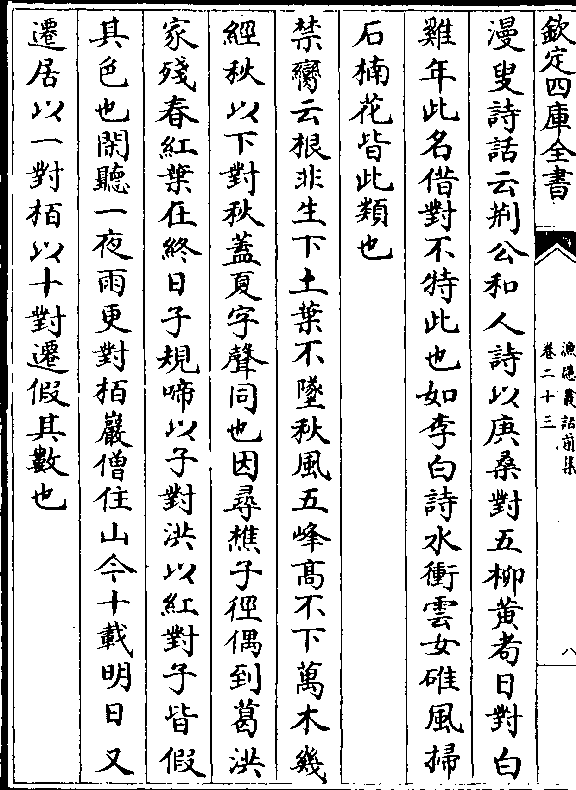 欽定四庫全書
漁隱叢話前集
卷二十三
八
漫叟詩話云荆公和人詩以庚桑對五柳黃耇日對白
雞年此名借對不特此也如李白詩水衝雲女碓風掃
石楠花皆此類也
禁臠云根非生下土葉不墜秋風五峰髙不下萬木幾
經秋以下對秋蓋夏字聲同也因尋樵子徑偶到葛洪
家殘春紅葉在終日子規啼以子對洪以紅對子皆假
其色也閑聽一夜雨更對栢巖僧住山今十載明日又
遷居以一對栢以十對遷假其數也